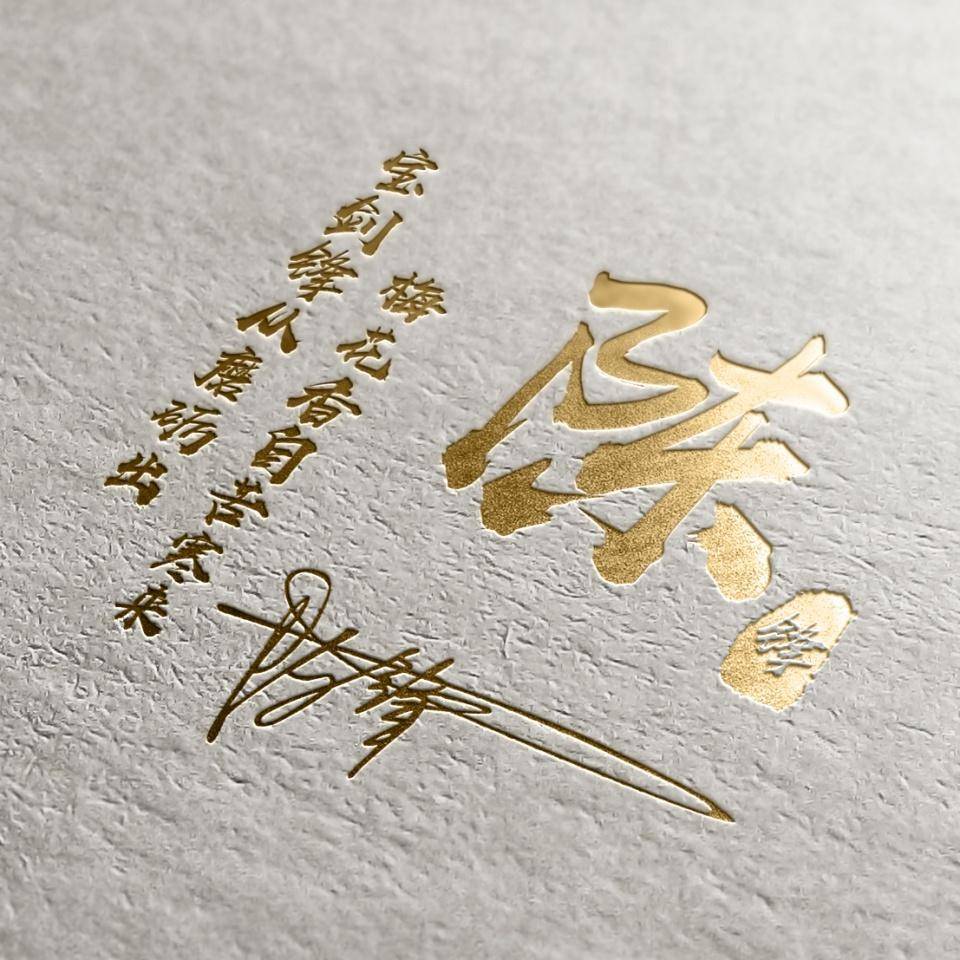 宝剑锋从磨砺出
梅花香自苦寒来
陈
锋
陈锋